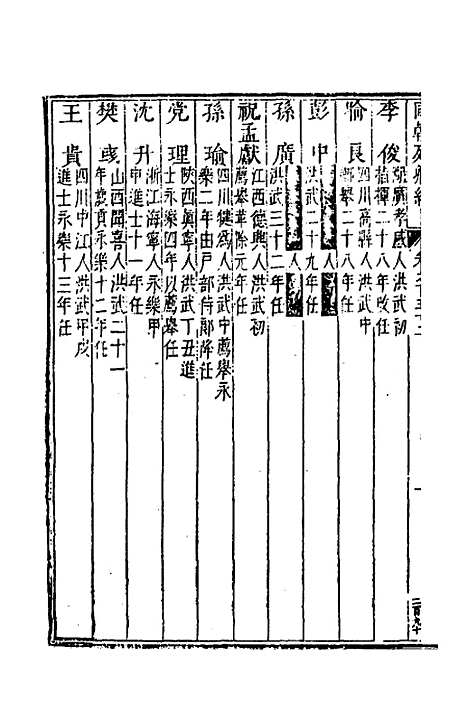 李俊 湖廣孝感人洪武初
二十八年改任
喻良 四川高縣人洪武中
薦舉二十八年任
彭中 人
洪武二十九年任
孫廣 人
洪武三十二年任
祝孟獻 江西德興人洪武初
薦舉革除元年任
孫瑜 四川犍爲人洪武中薦舉永
樂二年由戶部侍郎降任
党理 陝西眞寧人洪武丁丑進
士永樂四年以薦舉任
沈升 浙江海寧人永樂甲
申進士十一年任
樊彧 山西聞喜人洪武二十一
年歲貢永樂十二年任
王貴 四川中江人洪武甲戌
進士永樂十三年任